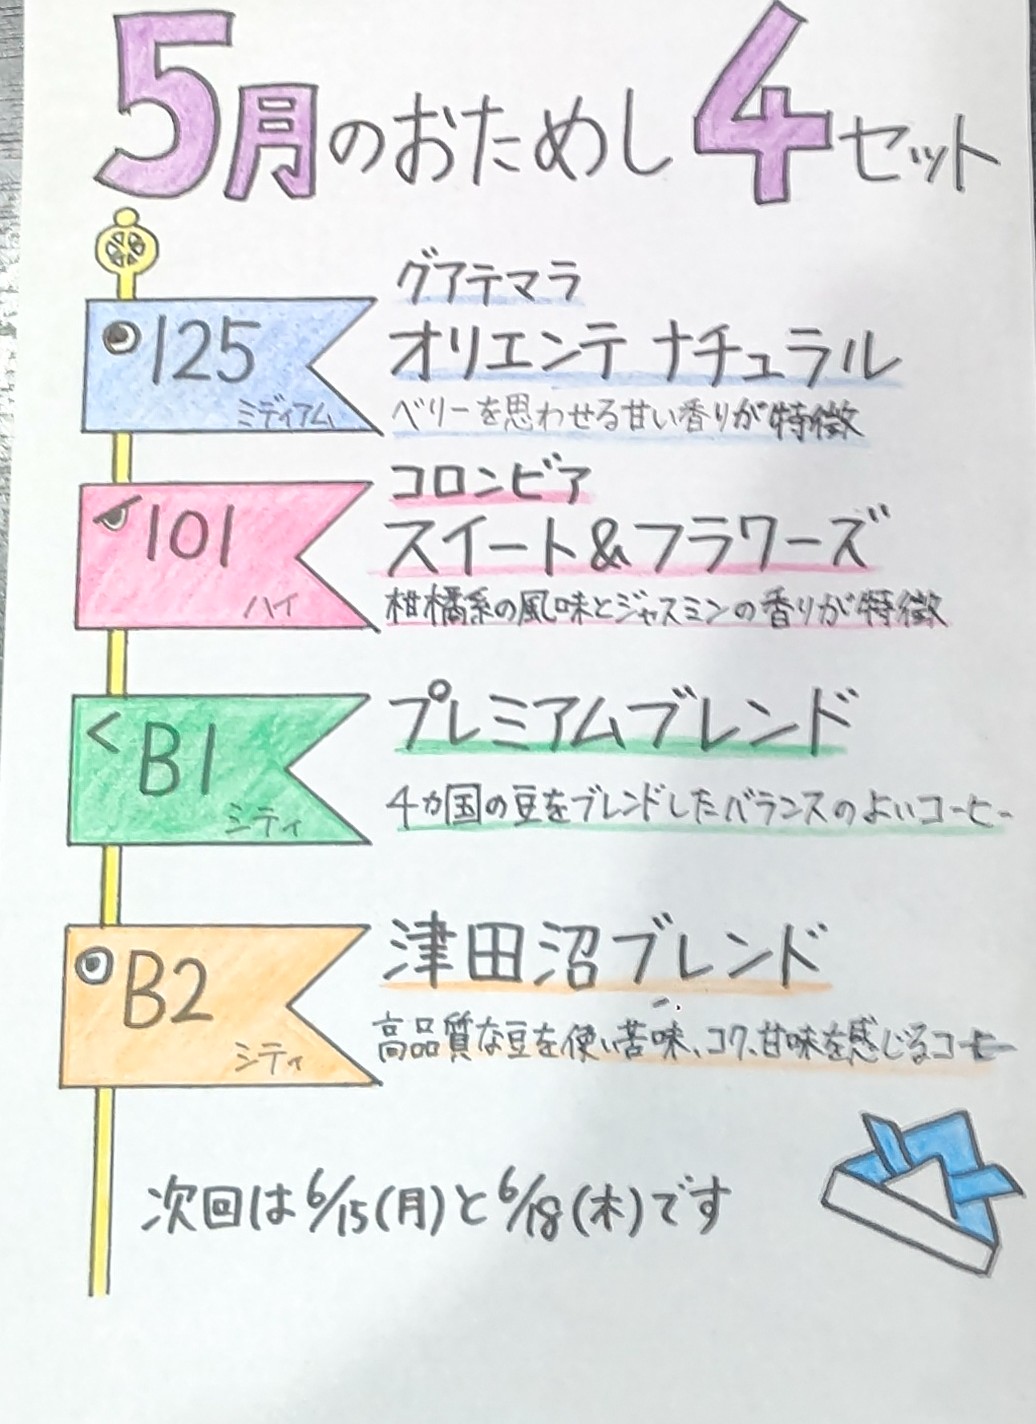 5月のおためし4セット
グアテマラ
125
オリエンテ ナチュラル
ミディアム
ベリーを思わせる甘い香りが特徴
コロンビア
101
スイート&フラワーズ
ハイ
柑橘系の風味とジャスミンの香りが特徴
B1
プレミアムブレンド
シティ
4カ国の豆をブレンドしたバランスのよいコーヒー
B2
津田沼ブレンド
シティ
高品質な豆を使い苦味、コク、甘味を感じるコーヒー
次回は6/15(月)と6/18(木)です